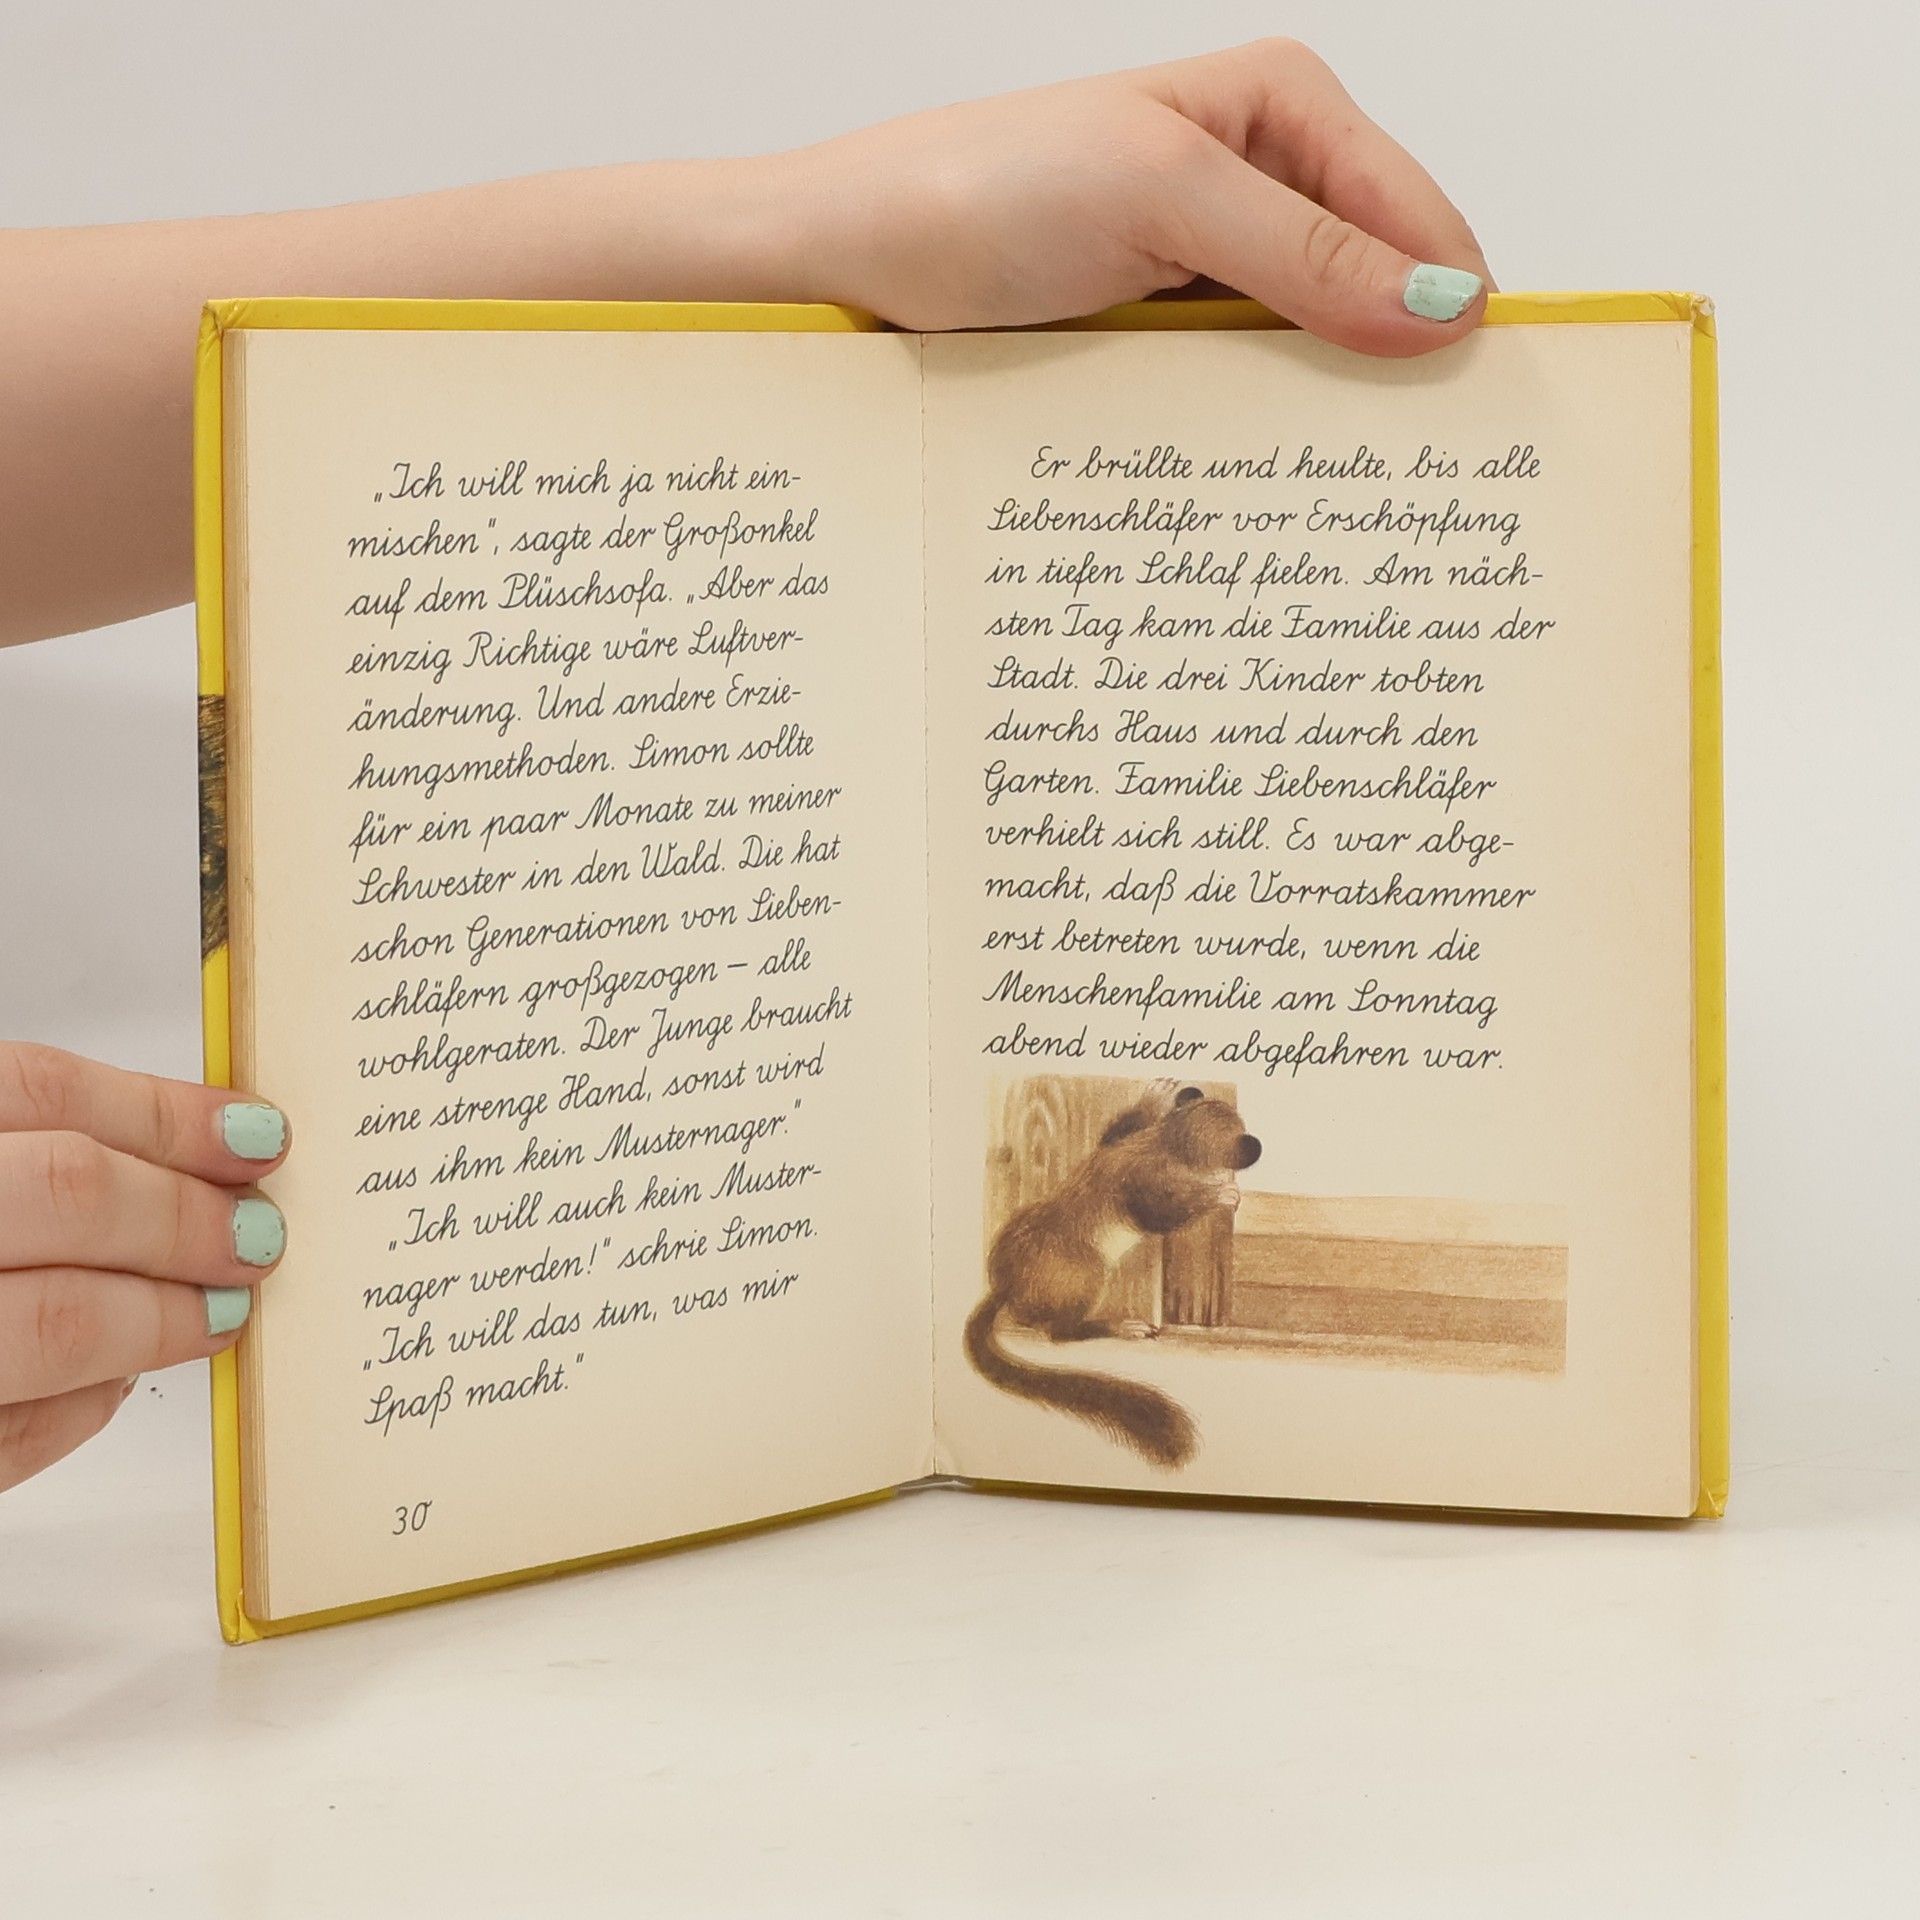 „Ich will mich ja nicht ein-
mischen“, sagte der Großonkel
auf dem Plüschsofa. „Aber das
einzig Richtige wäre Luftver-
änderung. Und andere Erzie-
hungsmethoden. Simon sollte
für ein paar Monate zu meiner
Schwester in den Wald. Die hat
schon Generationen von Sieben-
schläfern großgezogen – alle
wohlgeraten. Der Junge braucht
eine strenge Hand, sonst wird
aus ihm kein Musternager.“
„Ich will auch kein Muster-
nager werden!“ schrie Simon.
„Ich will das tun, was mir
Spaß macht.“
30
Er brüllte und heulte, bis alle
Siebenschläfer vor Erschöpfung
in tiefen Schlaf fielen. Am näch-
sten Tag kam die Familie aus der
Stadt. Die drei Kinder tobten
durchs Haus und durch den
Garten. Familie Siebenschläfer
verhielt sich still. Es war abge-
macht, daß die Vorratskammer
erst betreten wurde, wenn die
Menschenfamilie am Sonntag
abend wieder abgefahren war.